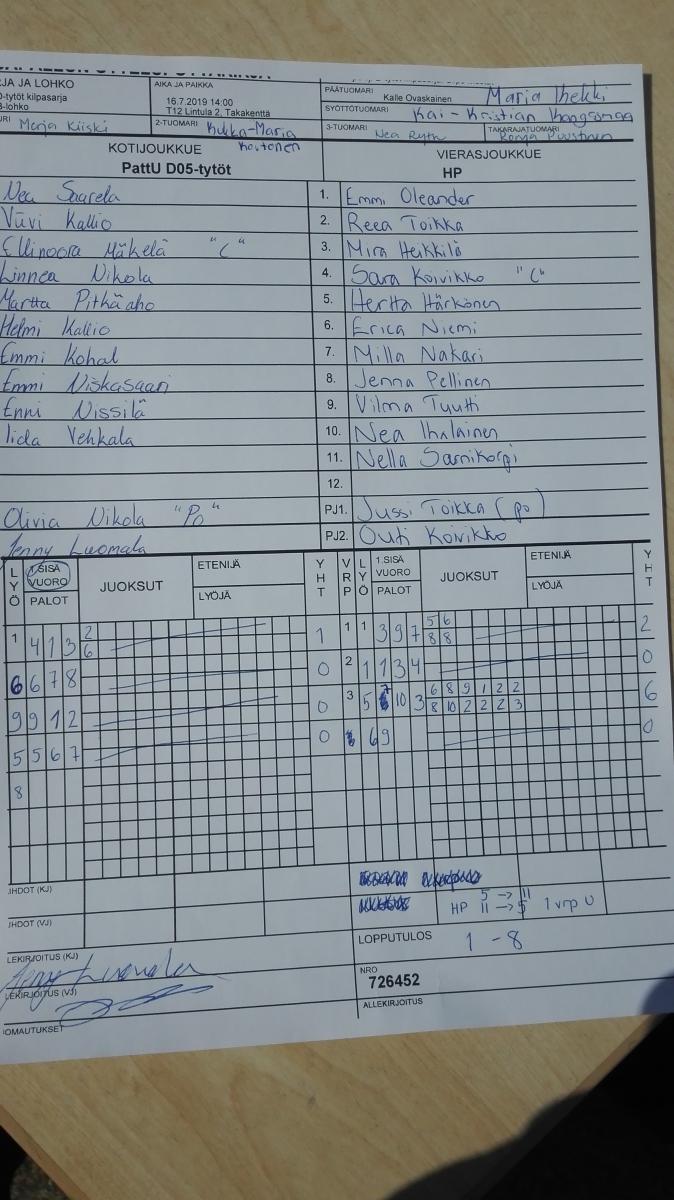 JA JA LOHKO
AIKA JA PAIKKA
PÄÄTUOMARI Kalle Ovaskainen
D-tytöt kilpasarja
16.7.2019 14:00
SYÖTTÖTUOMARI Kai-Kristian
B-lohko
T12 Lintula 2, Takakenttä
Merja Kiiski
2-TUOMARI Kukka-Maria
3-TUOMARI Nea
TAKARAJATUOMARI Ronja Puustinen
KOTIJOUKKUE
VIERASJOUKKUE
PattU D05-tytöt
HP
Nea Saarela 1. Emmi Oleander
Viivi Kallio 2. Reea Toikka
Ellinoora Mäkelä "C" 3. Mira Heikkilä
Linnea Nikola 4. Sara Koivikko "C"
Martta Pitkäaho 5. Hertta Härkönen
Helmi Kallio 6. Erica Niemi
Emmi Kohal 7. Milla Nakari
Emmi Niskasaari 8. Jenna Pellinen
Enni Nissilä 9. Vilma Tuutti
Iida Vehkala 10. Nea Ihalainen
11. Nella Sarnikorpi
12.
Olivia Nikola "Po" PJ1. Jussi Toikka (po)
Jenny Luomala PJ2. Outi Koivikko
LYÖ 1.SISÄ VUORO PALOT JUOKSUT ETENIJÄ LYÖJÄ YHT VRP LYÖ 1.SISÄ VUORO PALOT JUOKSUT ETENIJÄ LYÖJÄ YHT
1 4 1 3 2 6 1 1 1 3 9 7 5 6 8 8 2
6 6 7 8 0 2 1 1 3 4 0
9 9 1 2 0 3 5 7 10 3 6 8 9 1 2 2 8 10 2 2 2 3 6
5 5 6 7 0 6 9 0
8
JHDOT (KJ)
JHDOT (VJ)
HP 5 → 11
11 → 5 1 vrp U
LEKIRJOITUS (KJ)
LOPPUTULOS 1 - 8
Jenny Luomala
LEKIRJOITUS (VJ)
NRO
726452
OMAUTUKSET
ALLEKIRJOITUS